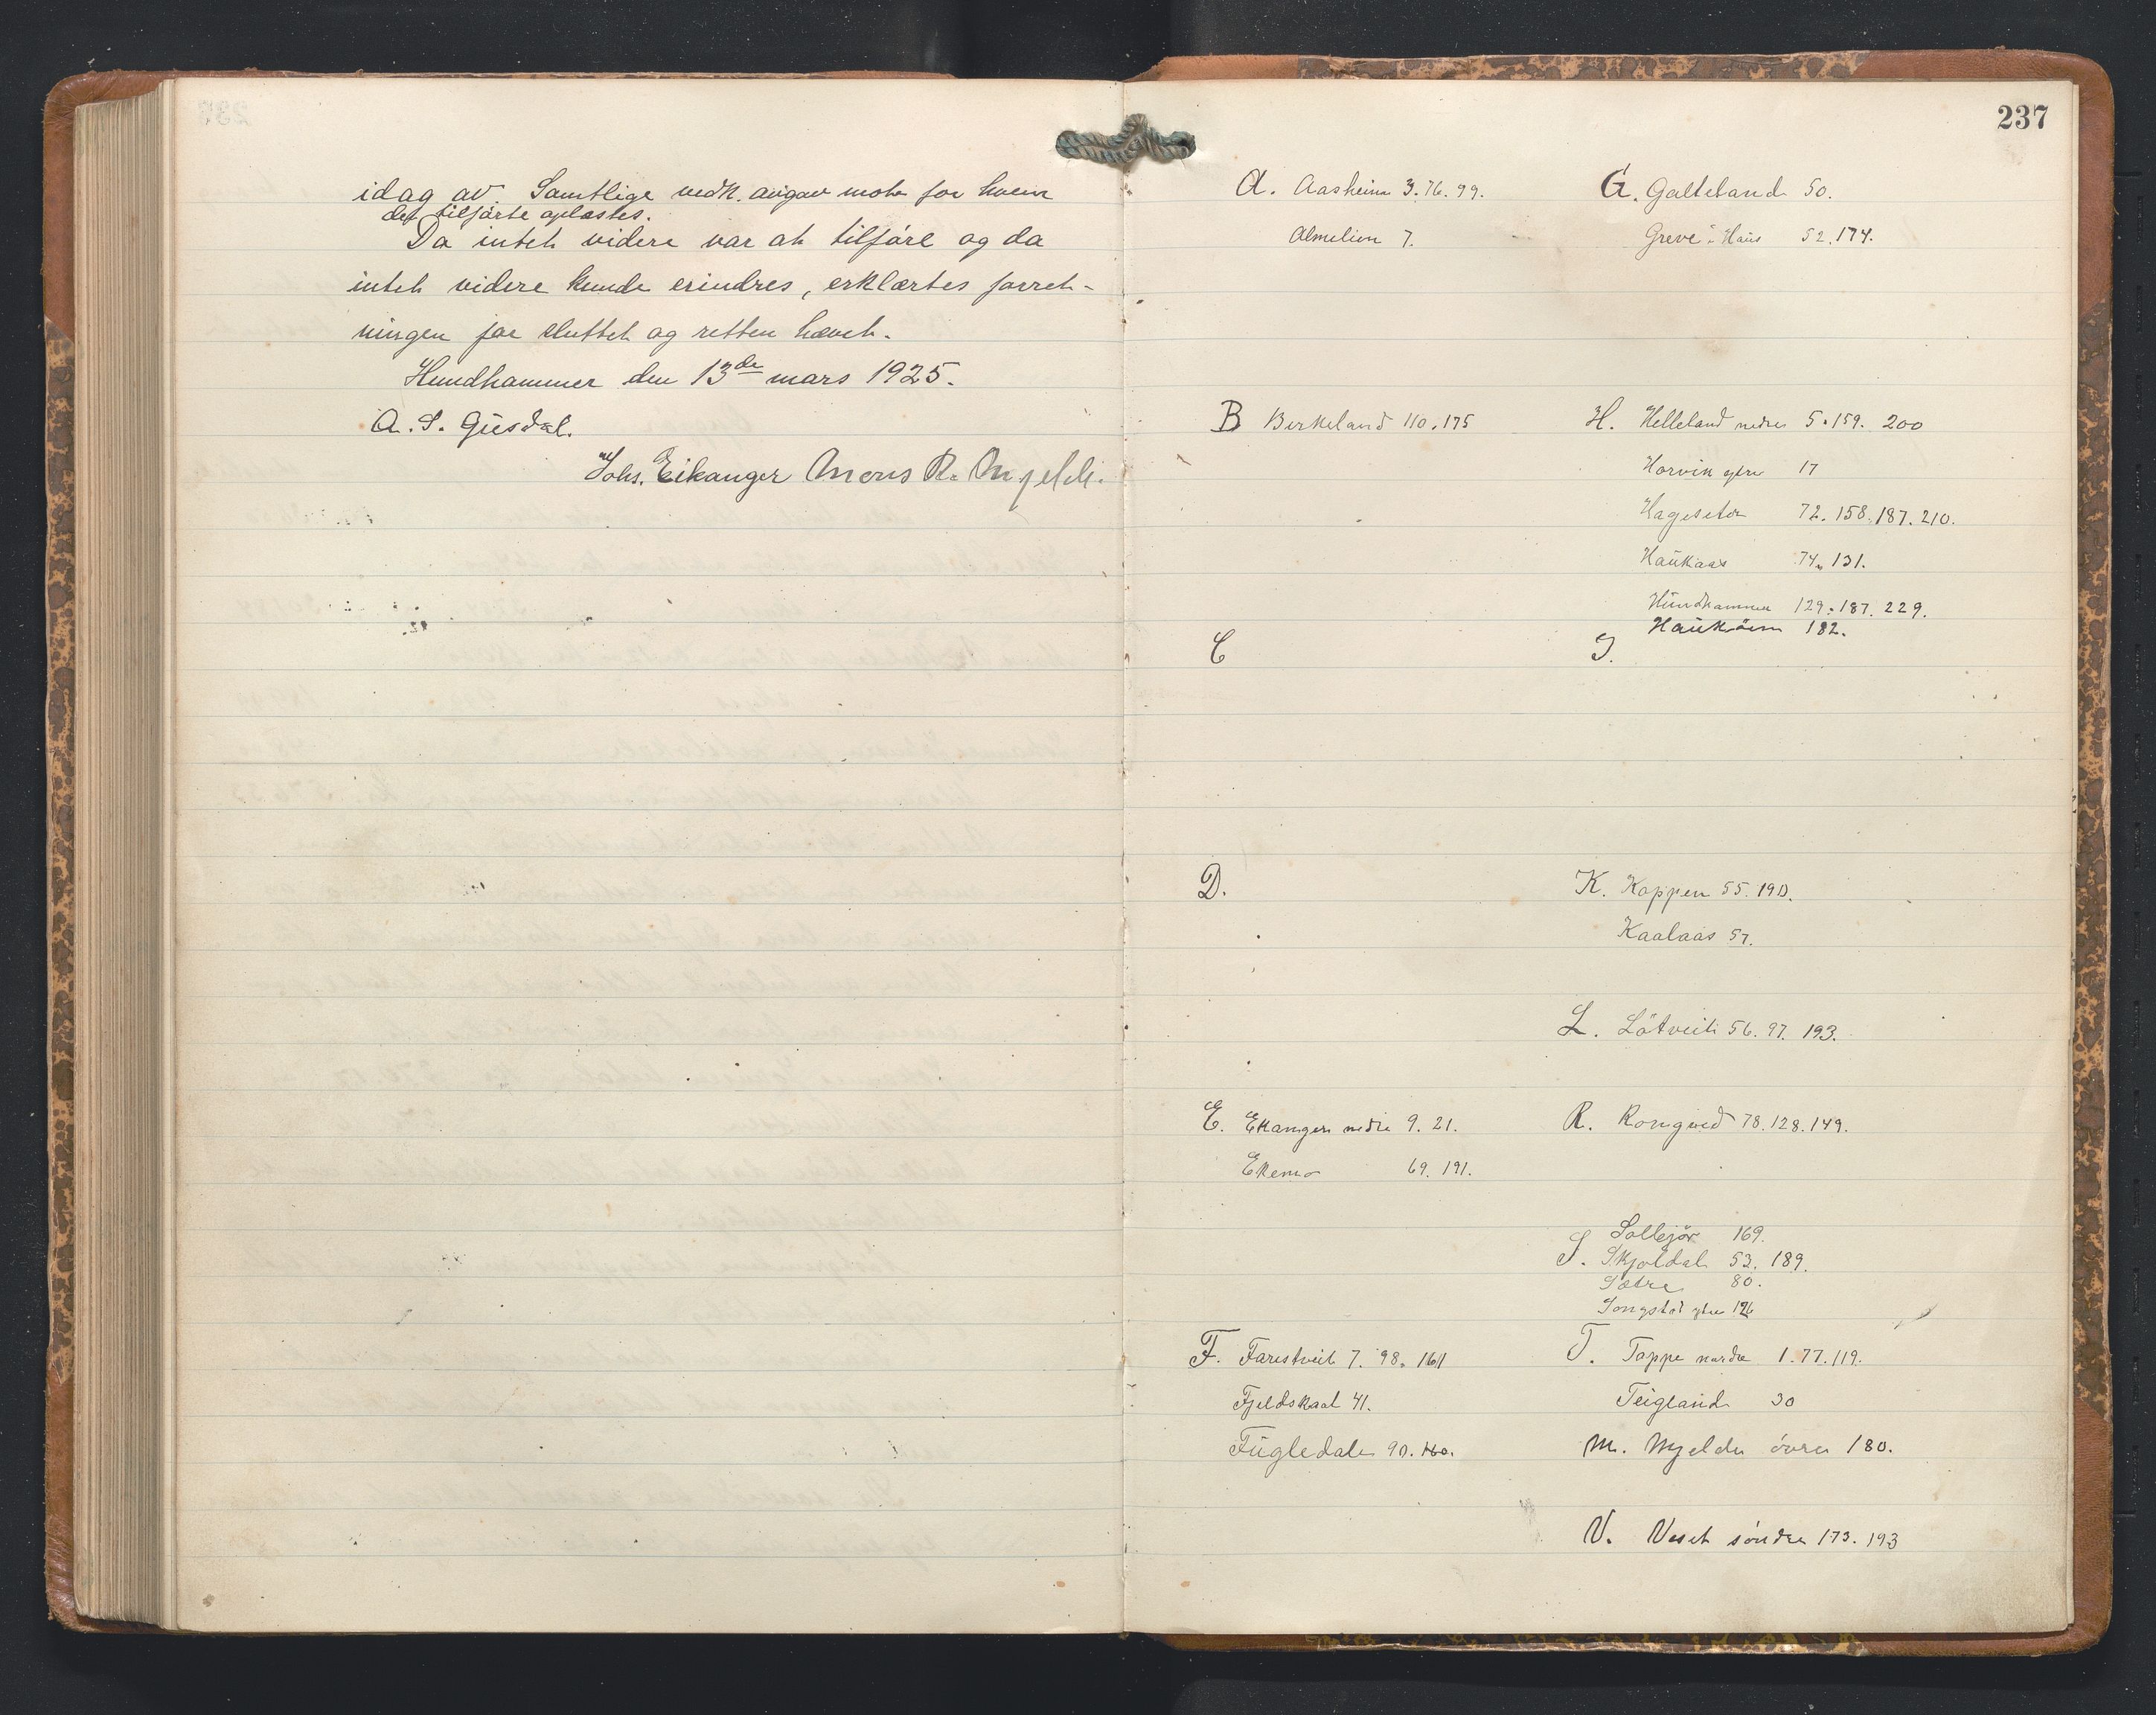 idag av. Samtlige vedk. avgav møte for hvem
det tilførte oplæstes.
Da intet videre var at tilføre og da
intet videre kunde erindres, erklærtes forret-
ningen for sluttet og retten hævet.
Hundhammer den 13de mars 1925.
A. S. Gusdal.
Johs. Eikanger Mons R. Mjelde.
237
A. Aasheim 3. 76. 99.
Almelien 7.
B Birkeland 110. 175
C
D.
E. Ekanger nedre 9. 21.
Ekemo 69. 191.
F. Farestveit 7. 98. 161
Fjeldskaal 41.
Fugledale 90. 160.
G. Galteland 50.
Greve-Haus 52. 174.
H. Helleland nedre 5. 159. 200
Horvik ytre 17
Hageseter 72. 158. 187. 210.
Haukaas 74. 131.
Hundhammer 129. 187. 229.
182.
I.
K. Kappen 55. 190.
Kaalaas 57.
L. Løtveit 56. 97. 193.
R. Rongved 78. 128. 149.
169.
S. Skjoldal 53. 189.
Sætre 80.
Songstad ytre 126
T. Toppe nordre 1. 77. 119.
Teigland 30
M. Mjelde øvre 180.
V. Veset søndre 173. 193